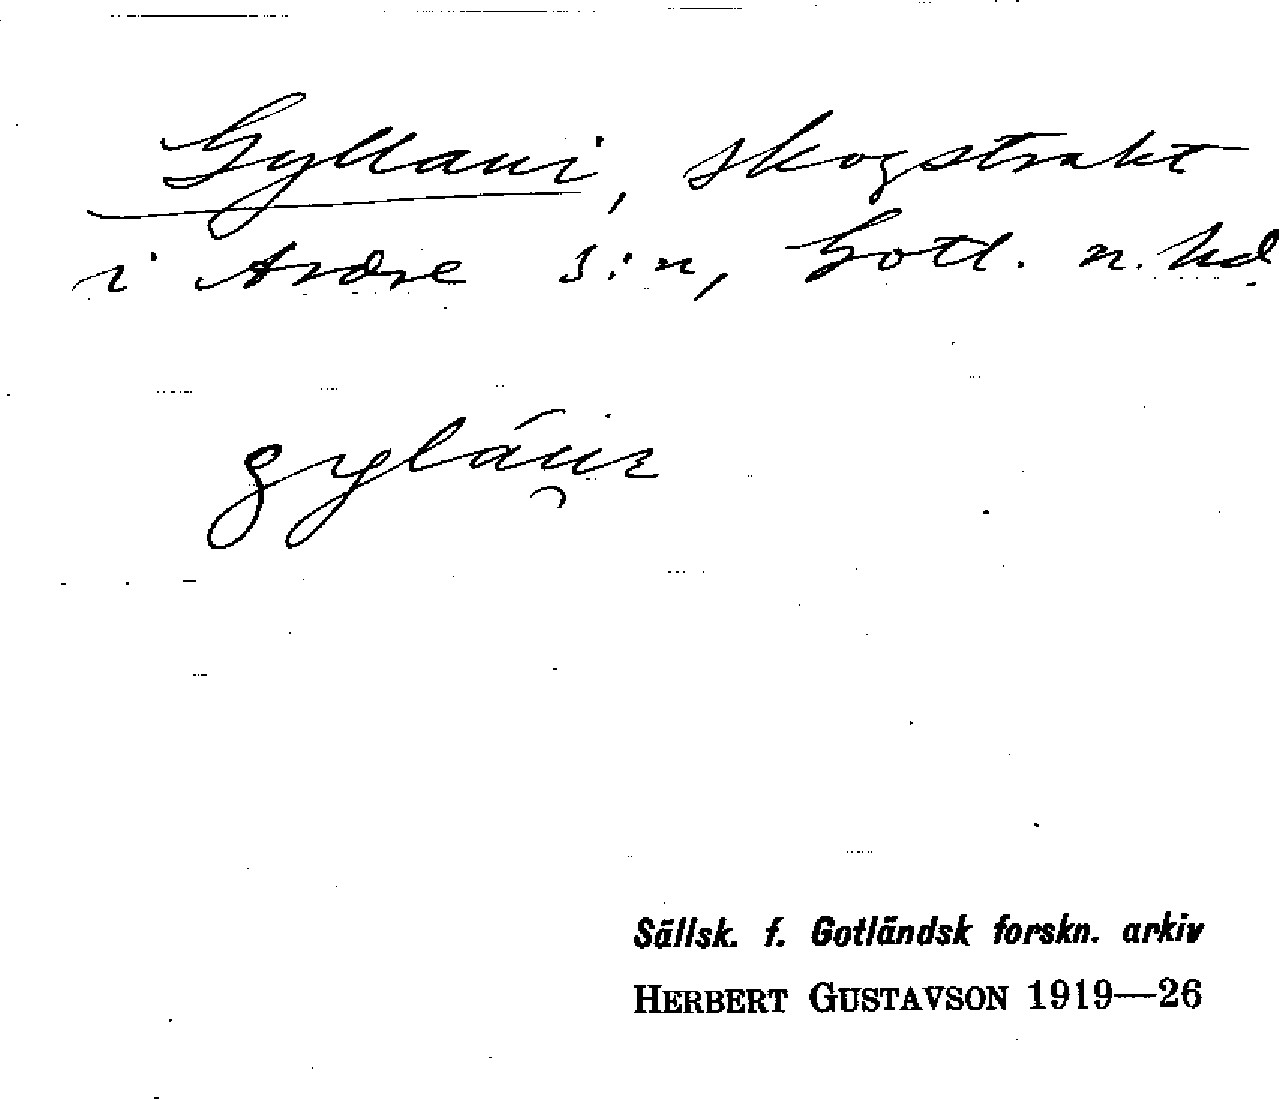 Gyllaui, skogstrakt
i Ardre s:n, Gotl. n. hd.
gyláu̯ı
Sällsk. f. Gotländsk forskn. arkiv
HERBERT GUSTAVSON 1919—26